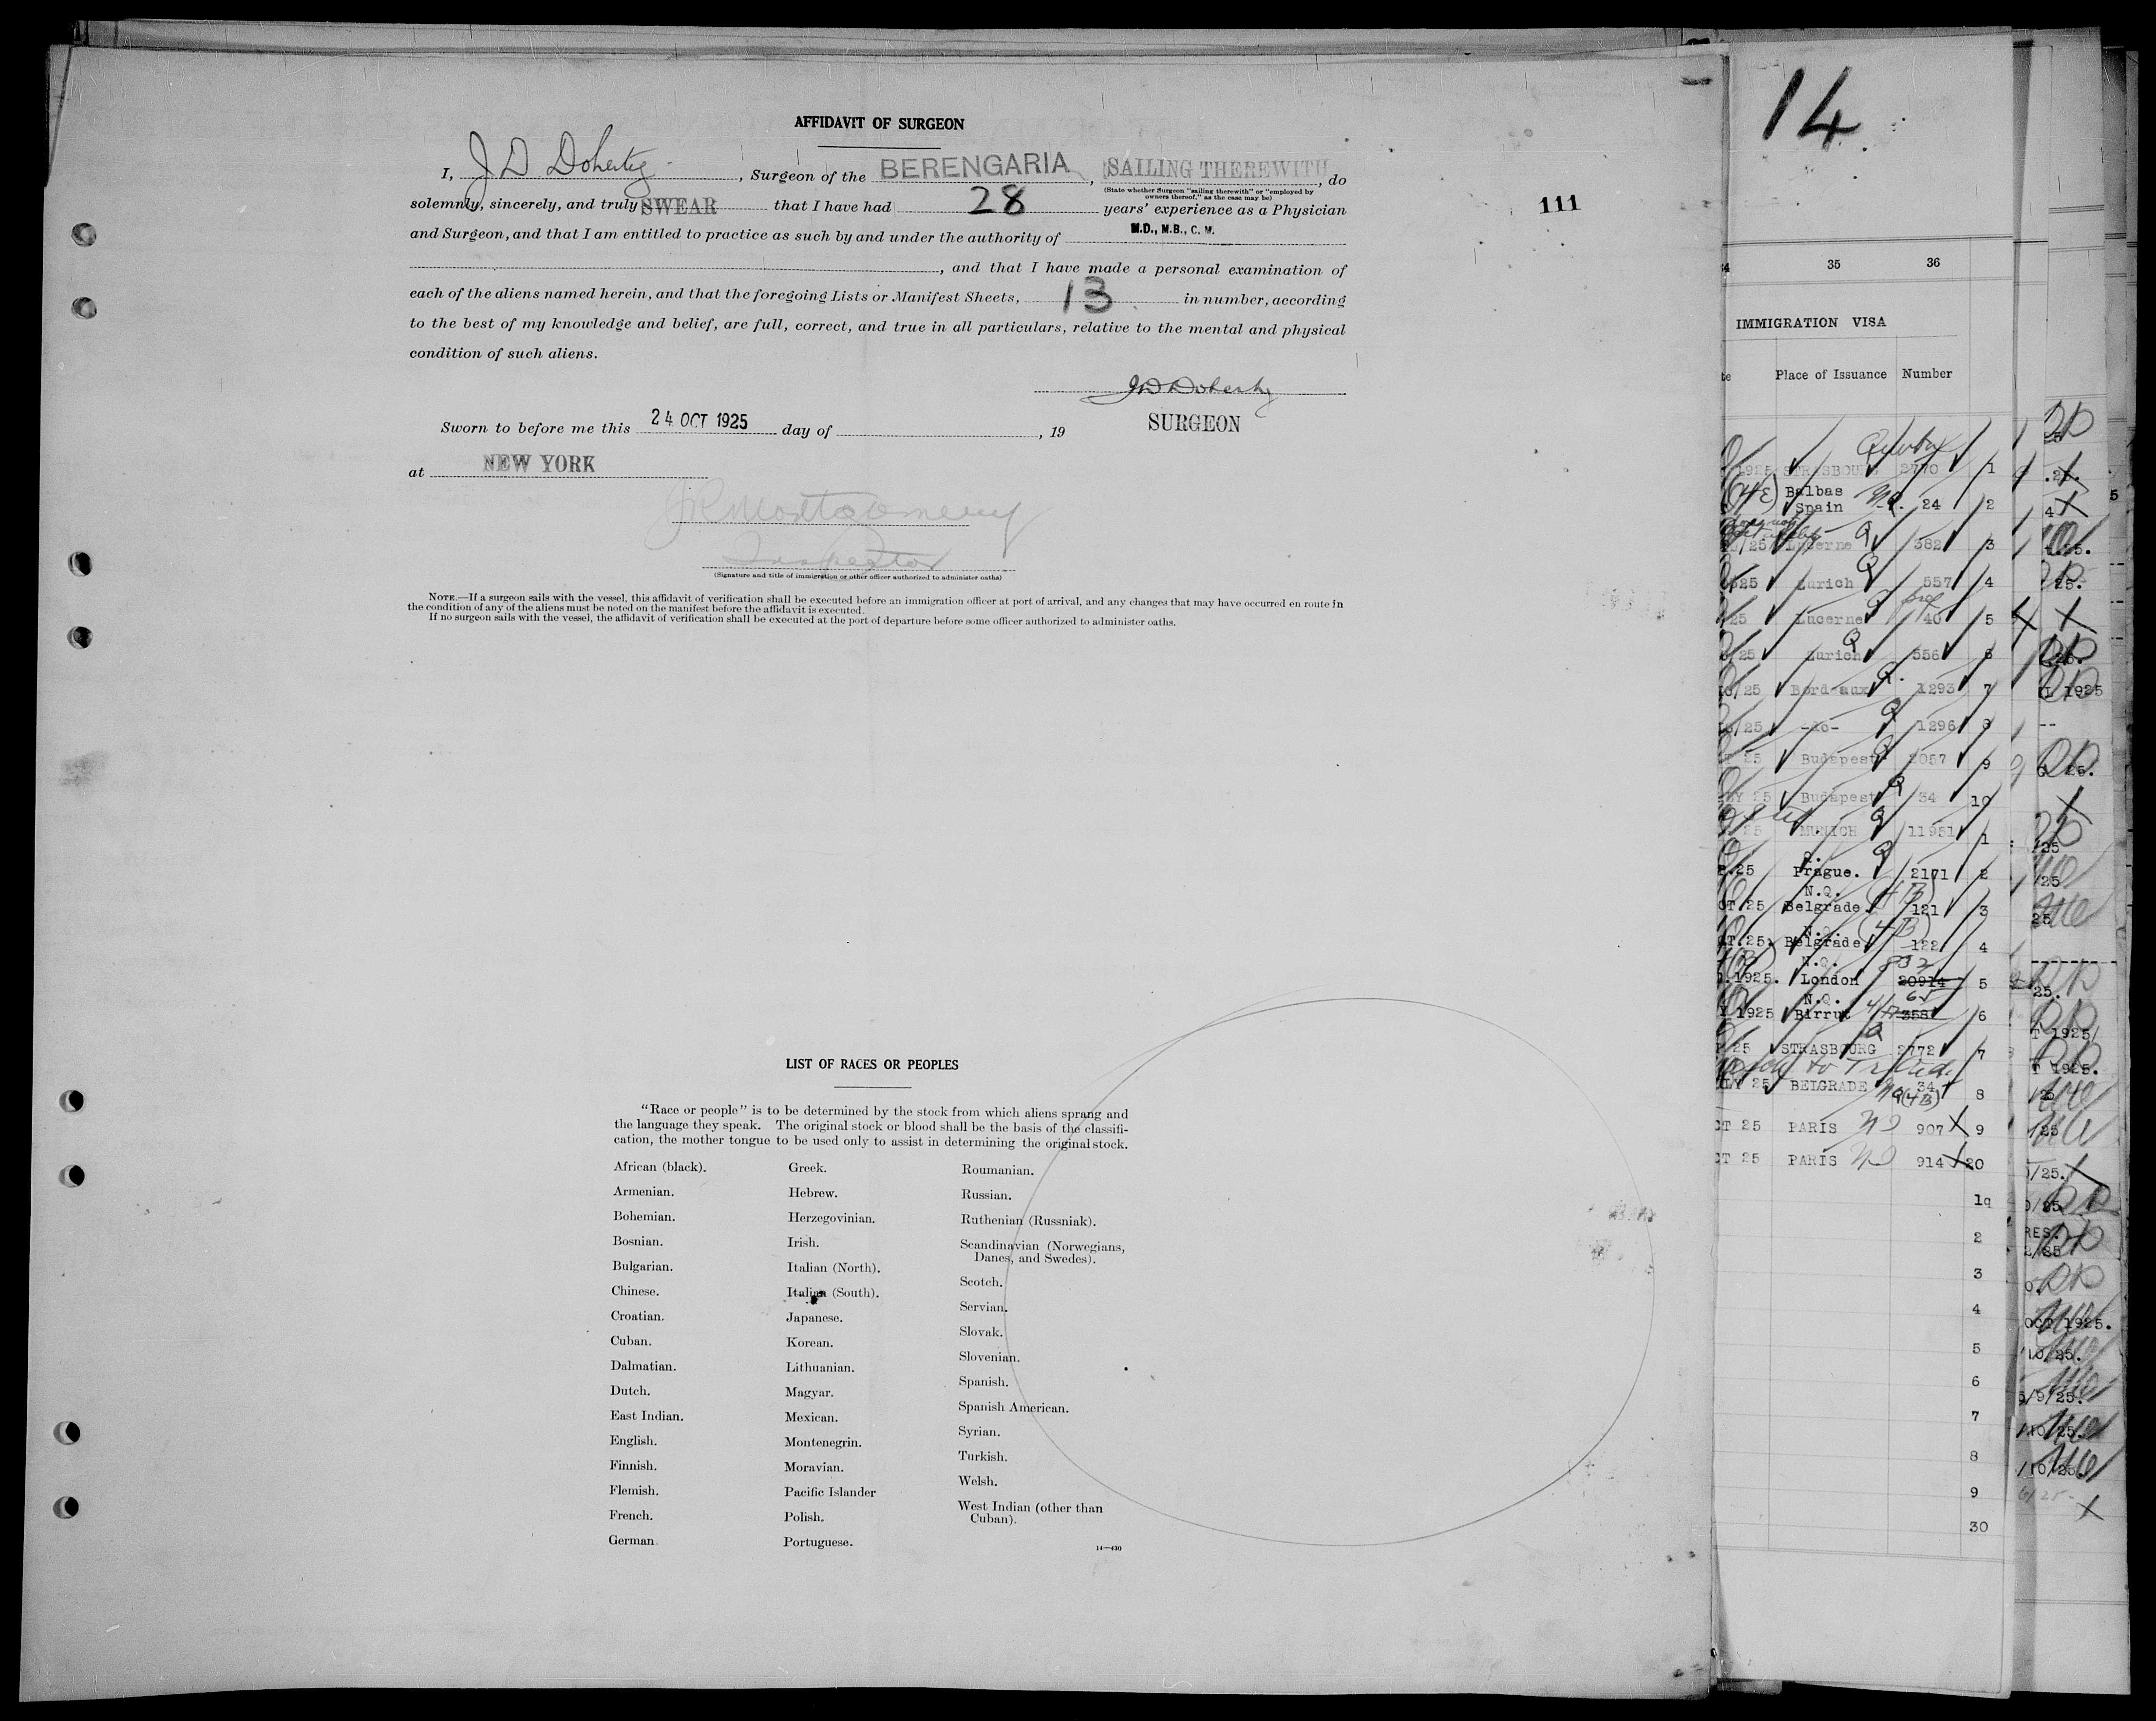 AFFIDAVIT OF SURGEON
I, J D Doherty, Surgeon of the BERENGARIA, SAILING THEREWITH, do
(State whether Surgeon "sailing therewith" or "employed by
owners thereof," as the case may be)
solemnly, sincerely, and truly SWEAR that I have had 28 years' experience as a Physician
and Surgeon, and that I am entitled to practice as such by and under the authority of M.D., M.B., C. M.
, and that I have made a personal examination of
each of the aliens named herein, and that the foregoing Lists or Manifest Sheets, 13 in number, according
to the best of my knowledge and belief, are full, correct, and true in all particulars, relative to the mental and physical
condition of such aliens.
J D Doherty
SURGEON
Sworn to before me this 24 OCT 1925 day of , 19
at NEW YORK
J R Montgomery
Inspector
(Signature and title of immigration or other officer authorized to administer oaths)
NOTE.—If a surgeon sails with the vessel, this affidavit of verification shall be executed before an immigration officer at port of arrival, and any changes that may have occurred en route in
the condition of any of the aliens must be noted on the manifest before the affidavit is executed.
If no surgeon sails with the vessel, the affidavit of verification shall be executed at the port of departure before some officer authorized to administer oaths.
111
LIST OF RACES OR PEOPLES
"Race or people" is to be determined by the stock from which aliens sprang and
the language they speak. The original stock or blood shall be the basis of the classifi-
cation, the mother tongue to be used only to assist in determining the original stock.
African (black).
Armenian.
Bohemian.
Bosnian.
Bulgarian.
Chinese.
Croatian.
Cuban.
Dalmatian.
Dutch.
East Indian.
English.
Finnish.
Flemish.
French.
German.
Greek.
Hebrew.
Herzegovinian.
Irish.
Italian (North).
Italian (South).
Japanese.
Korean.
Lithuanian.
Magyar.
Mexican.
Montenegrin.
Moravian.
Pacific Islander
Polish.
Portuguese.
Roumanian.
Russian.
Ruthenian (Russniak).
Scandinavian (Norwegians,
Danes, and Swedes).
Scotch.
Servian.
Slovak.
Slovenian.
Spanish.
Spanish American.
Syrian.
Turkish.
Welsh.
West Indian (other than
Cuban).
14—430
14
35 36
IMMIGRATION VISA
Place of Issuance Number
1925 STRASBOURG 2770 1
Balbas
Spain 24 2
/25 Lucerne Q 382 3
Zurich Q 557 4
25 Lucerne Q 40 5
/25 Zurich Q 556 6
/25 Bordeaux Q. 1293 7
/25 -do- Q 1296 8
25 Budapest Q 2057 9
25 Budapest Q 34 10
25 MUNICH Q 11951 1
25 Prague. Q 2171 2
N.Q. (4B)
OT 25 Belgrade 121 3
N.Q. (4B)
OT.25. Belgrade 122 4
N.Q. 832
1925. London 20914 5
N.Q. 65
1925 Birrut 358 6
25 STRASBOURG Q 2772 7
25 BELGRADE NQ (4B) 34 8
CT 25 PARIS 907 9
CT 25 PARIS 914 20
1
2
3
4
5
6
7
8
9
30